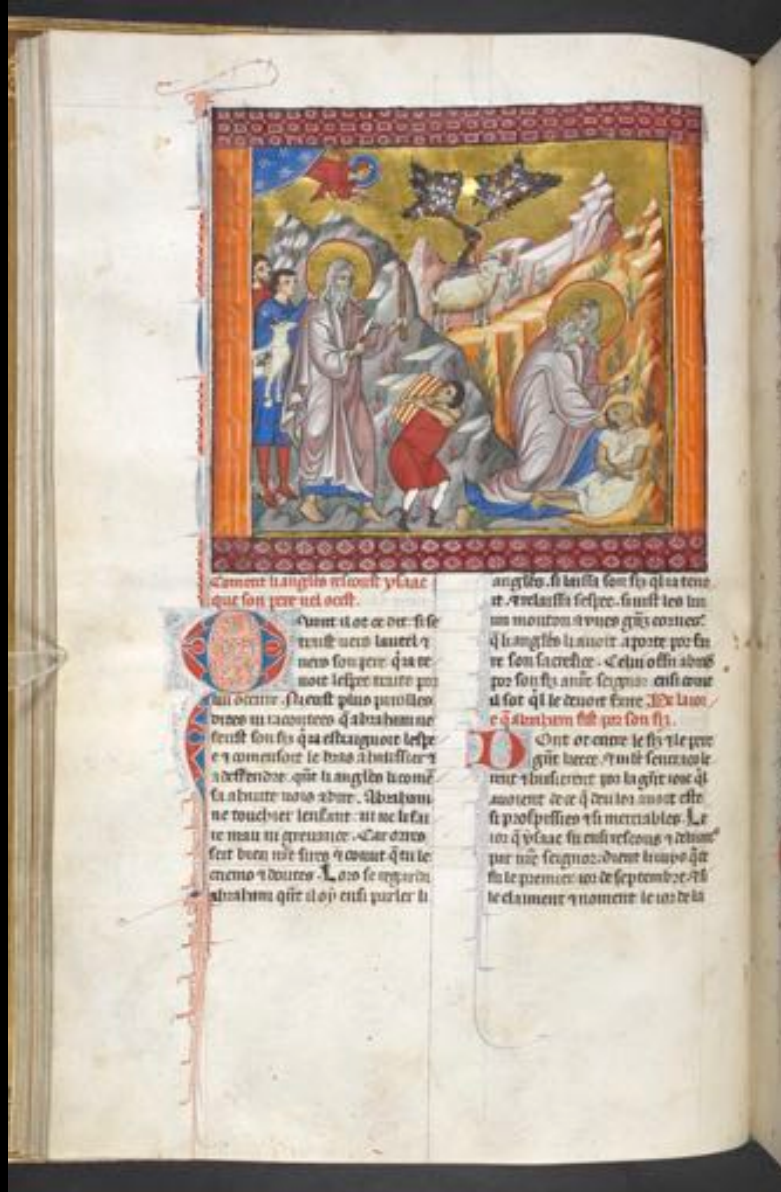 Coment li angles rescoust ysaac
que son pere nel ocist.
Quant il ot ce dit. si se
traist vers lautel ⁊
vers son pere q̃ ia te
noit lespee traite por
lui ocirre. Ni eust plus paroilles
dites ni racontees q̃ abraham ne
ferist son fiz q̃ ia estraignoit lespe
e ⁊ comensoit le bras a haussier ⁊
a deffendre. q̃nt li angles li comẽ
sa a haute vois a dire. Abraham
ne touchier lenfant. ni ne li fai
re mau ni grevance. Car ores
seit bien nr̃e sires ⁊ conut q̃ tu le
criems ⁊ doutes. Lors se regarda
abraham q̃nt il oy ensi parler li
angles. si laissa son fiz qͥl ia ten
it. ⁊ relaissa lespee. si vist les lui
un mouton a vnes gñz cornes.
q̃ li angles li avoit aporte por fai
re son sacrefice. Celui offri abrah̃
por son fiz a nr̃e seignor ensi come
il sot qͥl le devoit faire De la ioi
e q̃ abraham fist por son fiz.
Dont ot entre le fiz ⁊ le pere
gñt leece. ⁊ mlt sentracole
rent ⁊ baisierent por la gñt ioie qͥl
avoient de ce q̃ deu lor avoit este
si prospessies ⁊ si merciables. Le
ior q̃ ysaac fu ensi rescous ⁊ delivre
par nr̃e seignor. dient li iuys q̃ ce
fu le premier ior de septembre. ⁊ si
le claiment ⁊ noment le ior de la